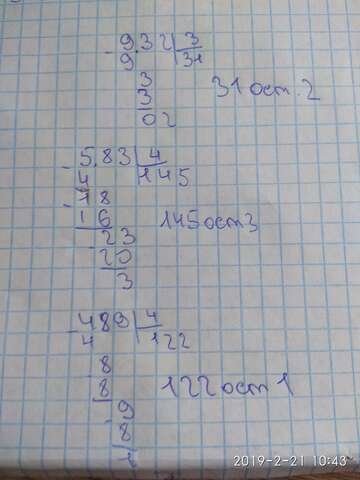 9.32 3
9 31
3
3
02
31 ост. 2
5.83 4
4 145
18
16
23
20
3
145 ост 3
489 4
4 122
8
8
9
8
1
122 ост 1
2019-2-21 10:43